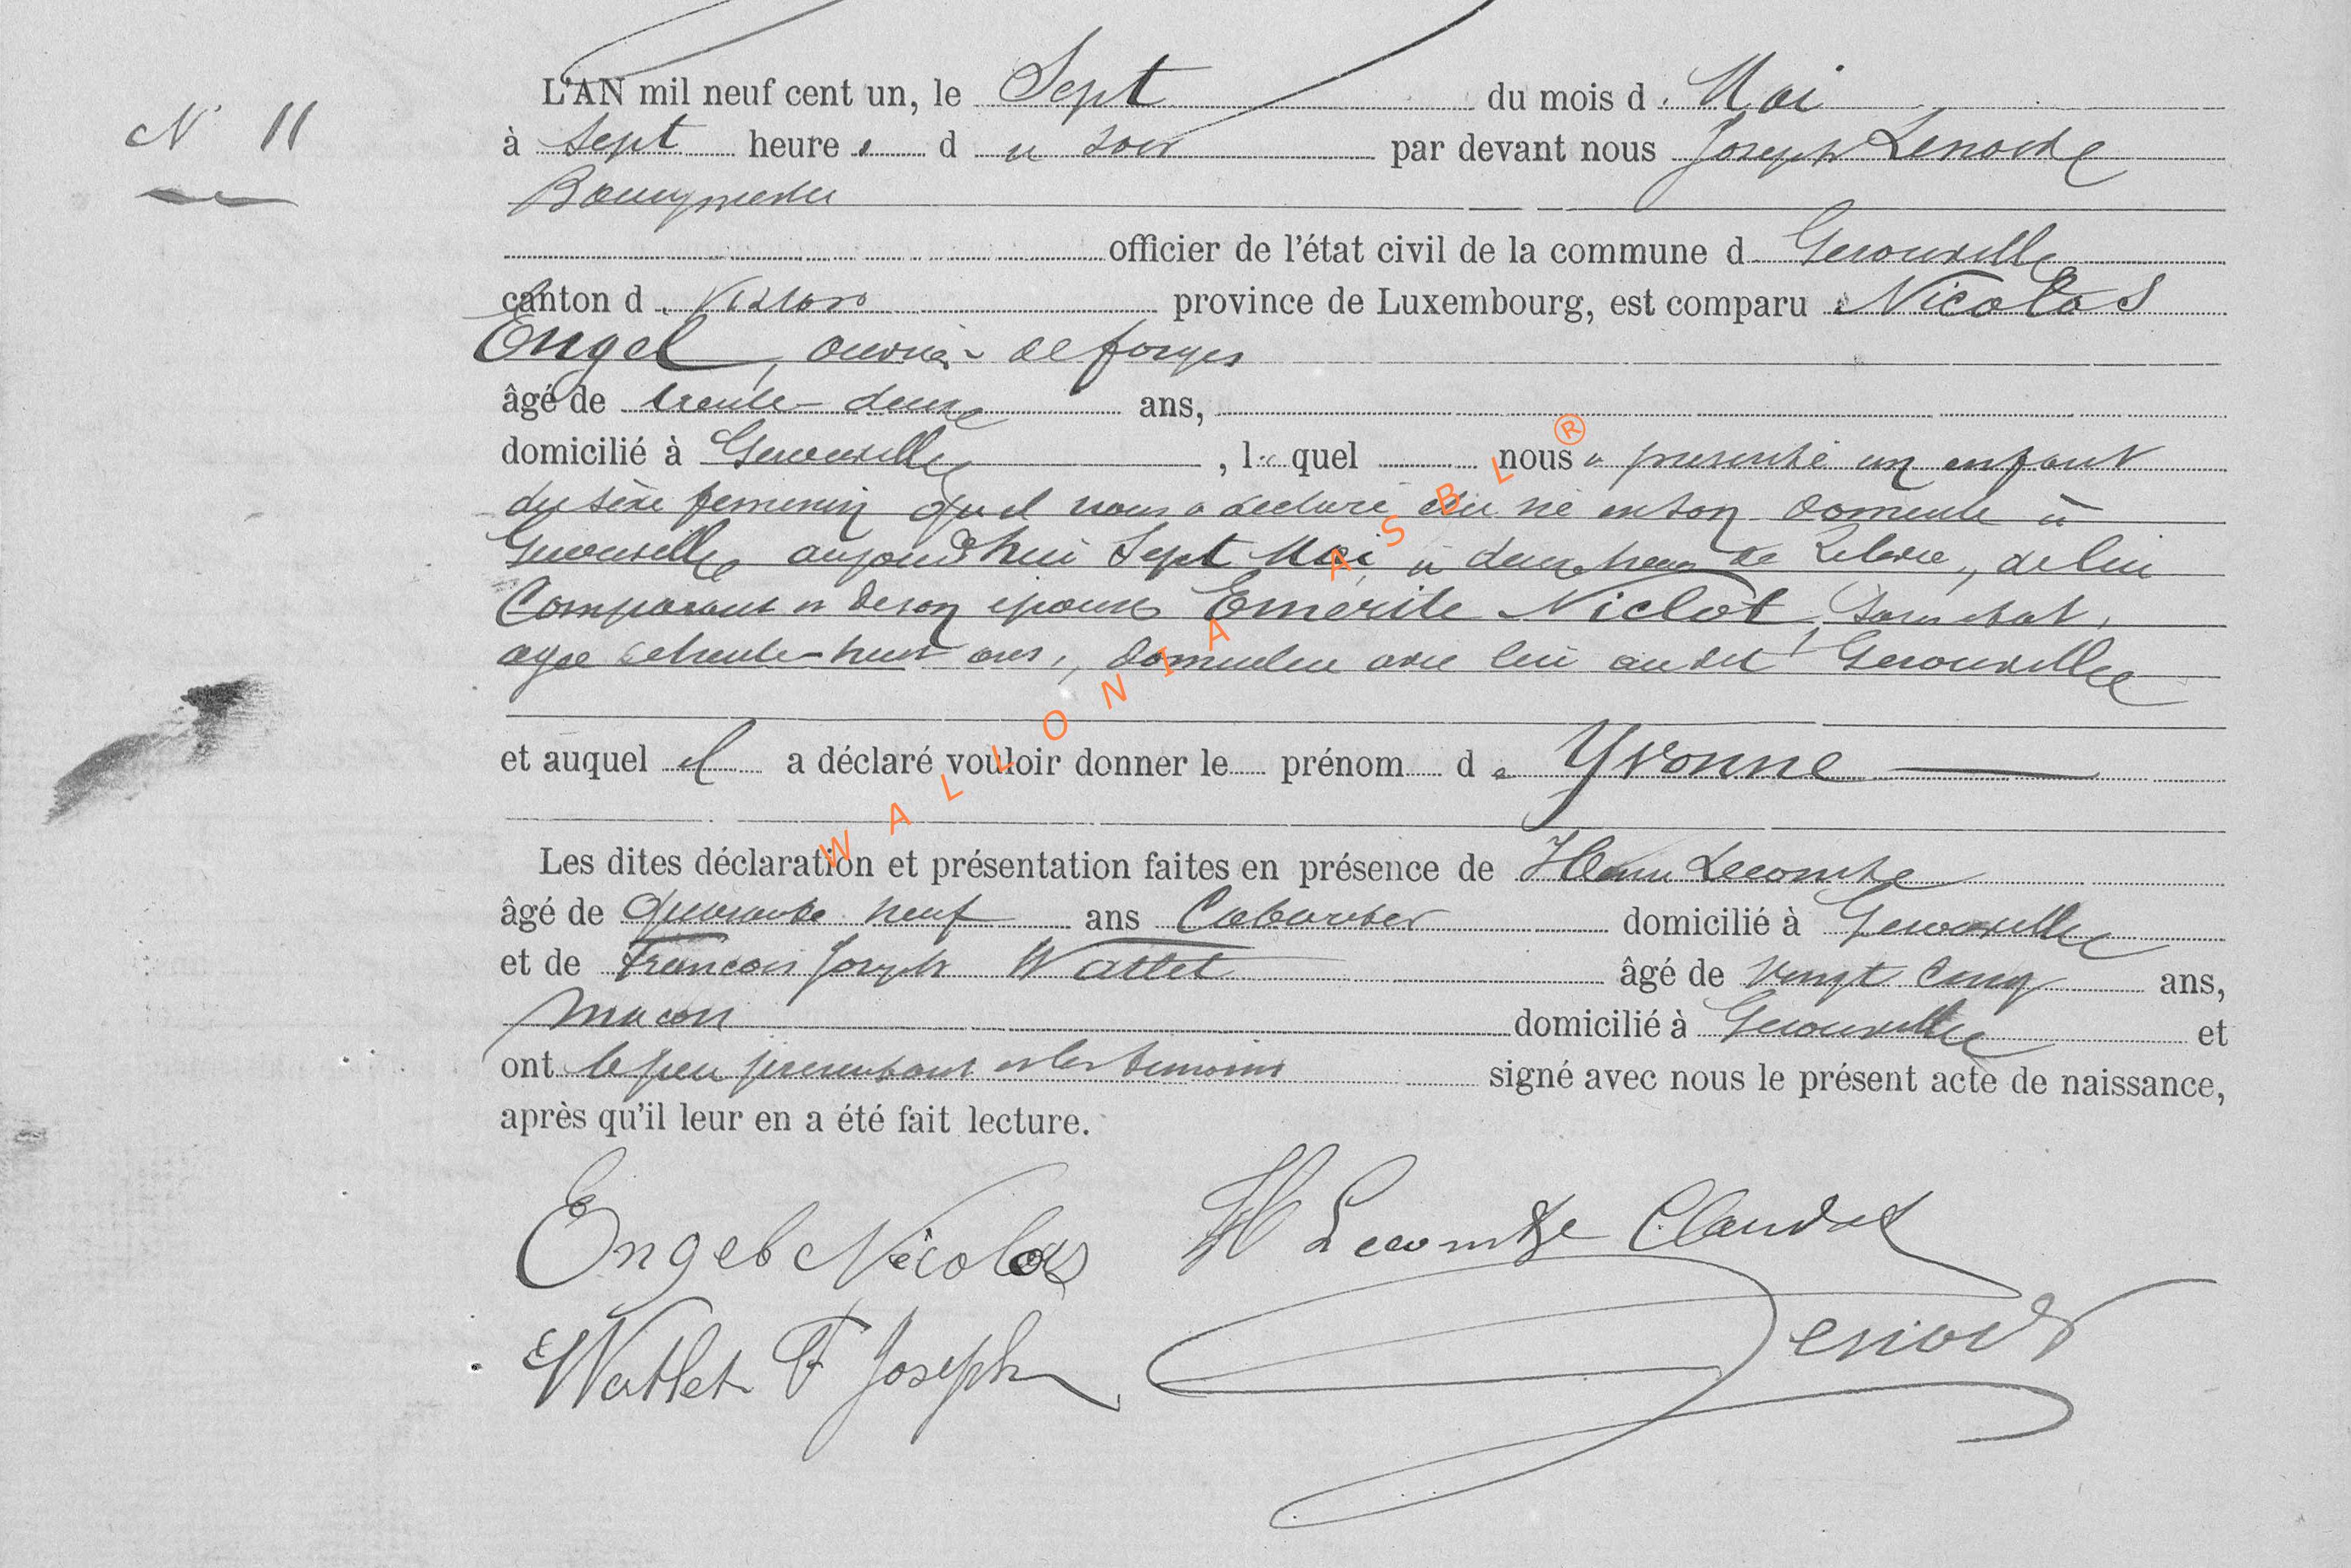 N 11
L'AN mil neuf cent un, le Sept du mois d Mai
à sept heure s du soir par devant nous Joseph Lenoble
Bourgmestre
officier de l'état civil de la commune d Gerouville
canton d Virton province de Luxembourg, est comparu Nicolas
Engel, ouvrier de forges
âgé de trente-deux ans,
domicilié à Gerouville, le quel nous a presenté un enfant
du sexe feminin qu'il nous a declaré être né en son domicile à
Gerouville aujourd'hui Sept Mai à deux heures de relevée, de lui
Comparant et de son epouse Emerite Niclot, sans etat,
agée de trente-huit ans, domiciliée avec lui au dit Gerouville
et auquel il a déclaré vouloir donner le prénom de Yvonne
Les dites déclaration et présentation faites en présence de Henri Lecomte
âgé de quarante neuf ans Cabaretier domicilié à Gerouville
et de Francois Joseph Watlet âgé de vingt cinq ans,
macon domicilié à Gerouville et
ont le pere presentant et les temoins signé avec nous le présent acte de naissance,
après qu'il leur en a été fait lecture.
Engel Nicolas H Lecomte Claudat
Watlet F Joseph
WALLONIA ASBL ®